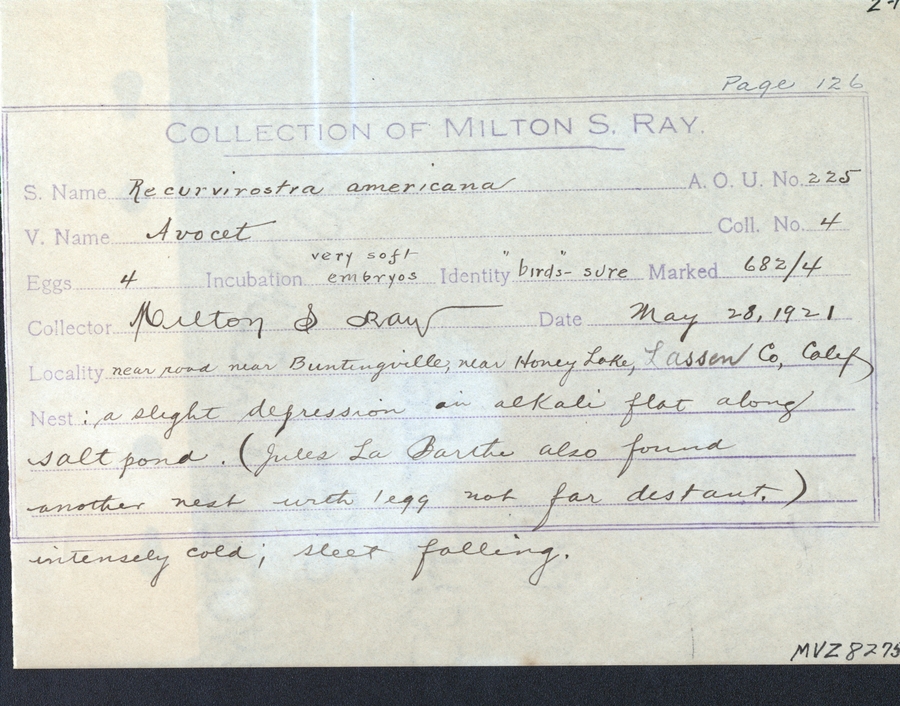 Page 126
COLLECTION OF MILTON S. RAY.
S. Name Recurvirostra americana A. O. U. No. 225
V. Name Avocet Coll. No. 4
Eggs 4 Incubation very soft embryos Identity "birds"- sure Marked 682/4
Collector Milton S Ray Date May 28, 1921
Locality near road near Buntingville, near Honey Lake, Lassen Co, Calif
Nest : a slight depression on alkali flat along
salt pond. (Jules La Barthe also found
another nest with 1 egg not far distant.)
intensely cold; sleet falling.